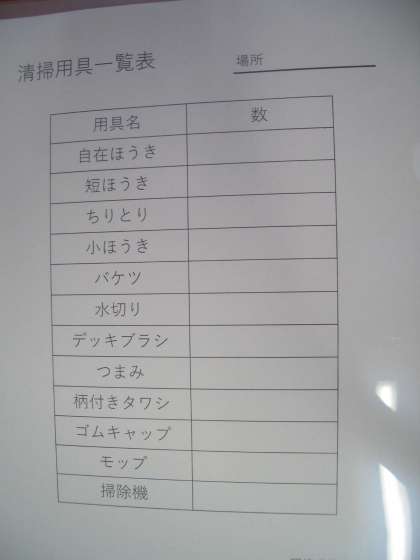 清掃用具一覧表
場所
用具名 数
自在ほうき
短ほうき
ちりとり
小ほうき
バケツ
水切り
デッキブラシ
つまみ
柄付きタワシ
ゴムキャップ
モップ
掃除機